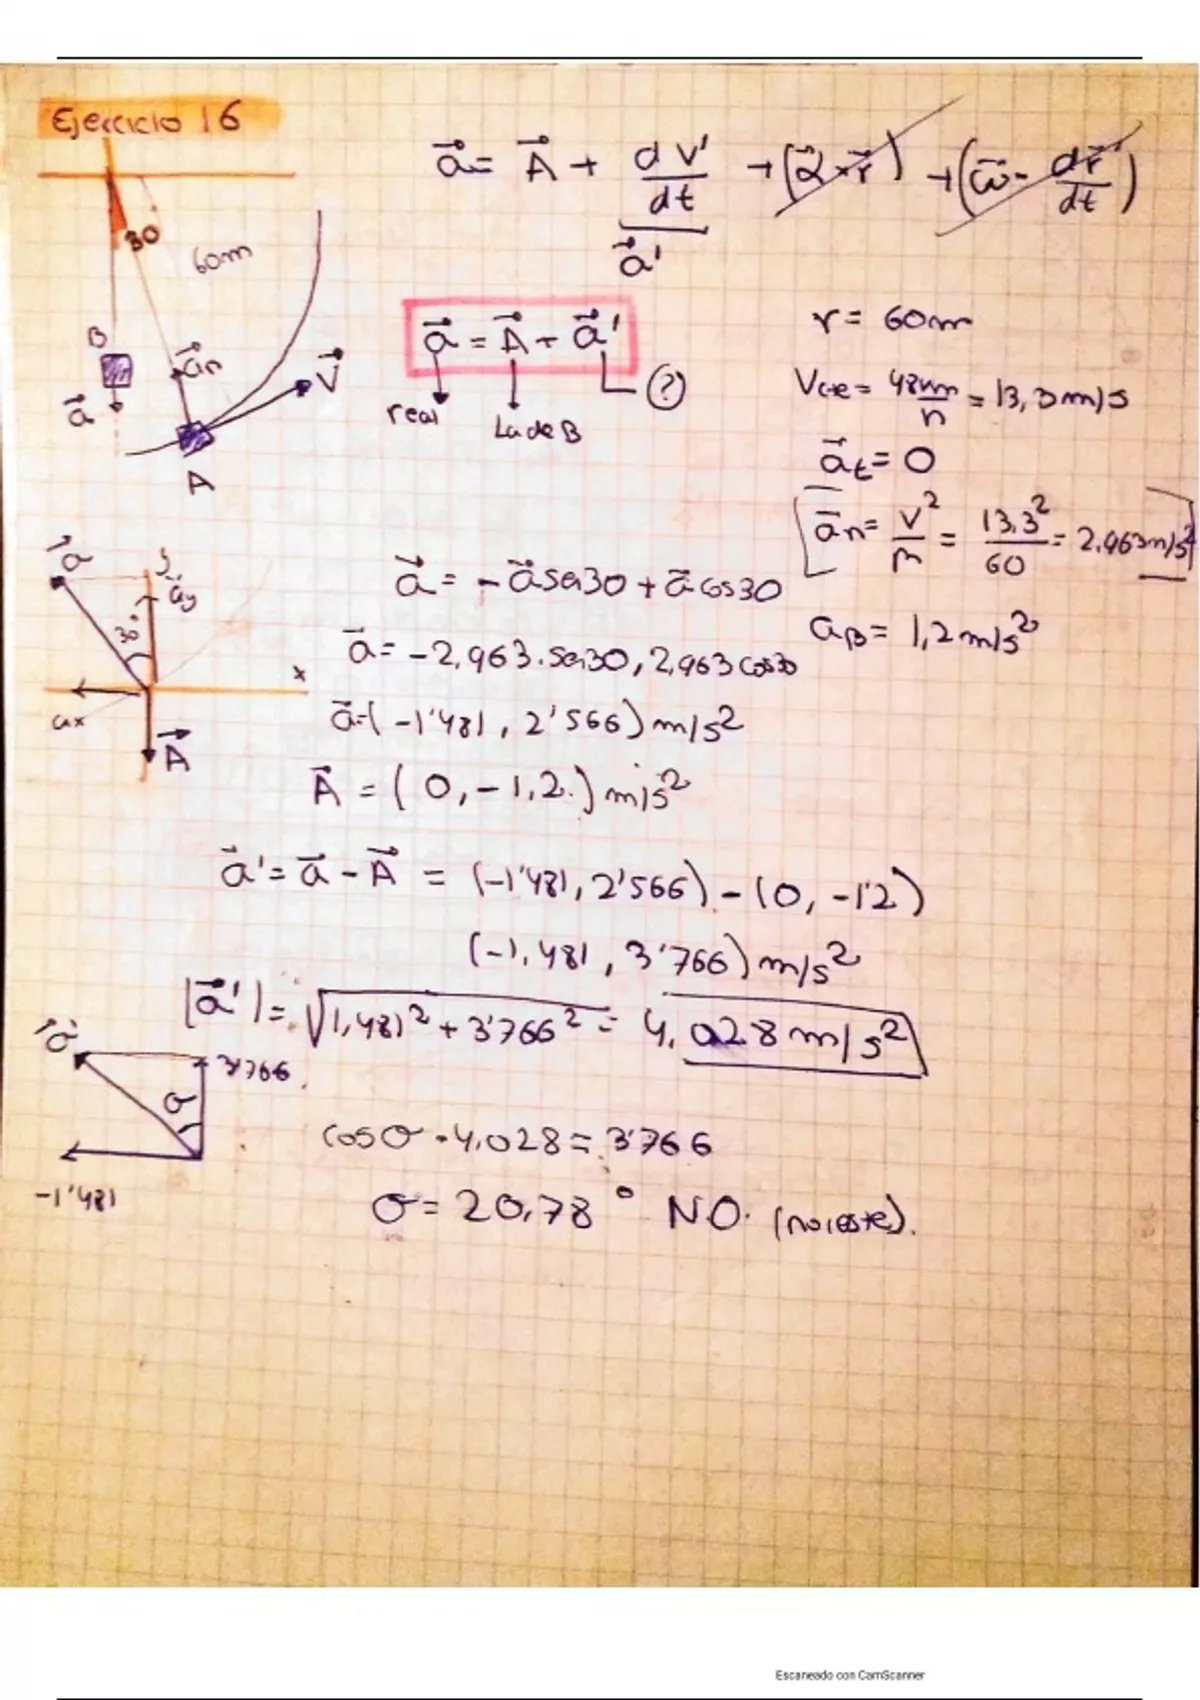 Ejercicio 16
a = A + dv'/dt + (α × r) + (ω · dr/dt)
a'
30
60m
B
an
V
a
A
a = A + a'
real
La de B
?
r = 60m
Vcte = 48km/h = 13,3m/s
at = 0
an = v²/R = 13,3²/60 = 2.963m/s²
aB = 1,2m/s²
a
y
ay
30°
x
ax
A
a = -a sen30 + a cos30
a = -2,963·sen30, 2,963cos30
a=(-1'481, 2'566) m/s²
A = (0, -1,2) m/s²
a' = a - A = (-1'481, 2'566) - (0, -1'2)
(-1,481, 3'766) m/s²
|a'| = √1,481² + 3'766² = 4,028 m/s²
a
3'766
σ
-1'481
cosσ · 4,028 = 3'766
σ = 20,78° NO. (noroeste).
Escaneado con CamScanner